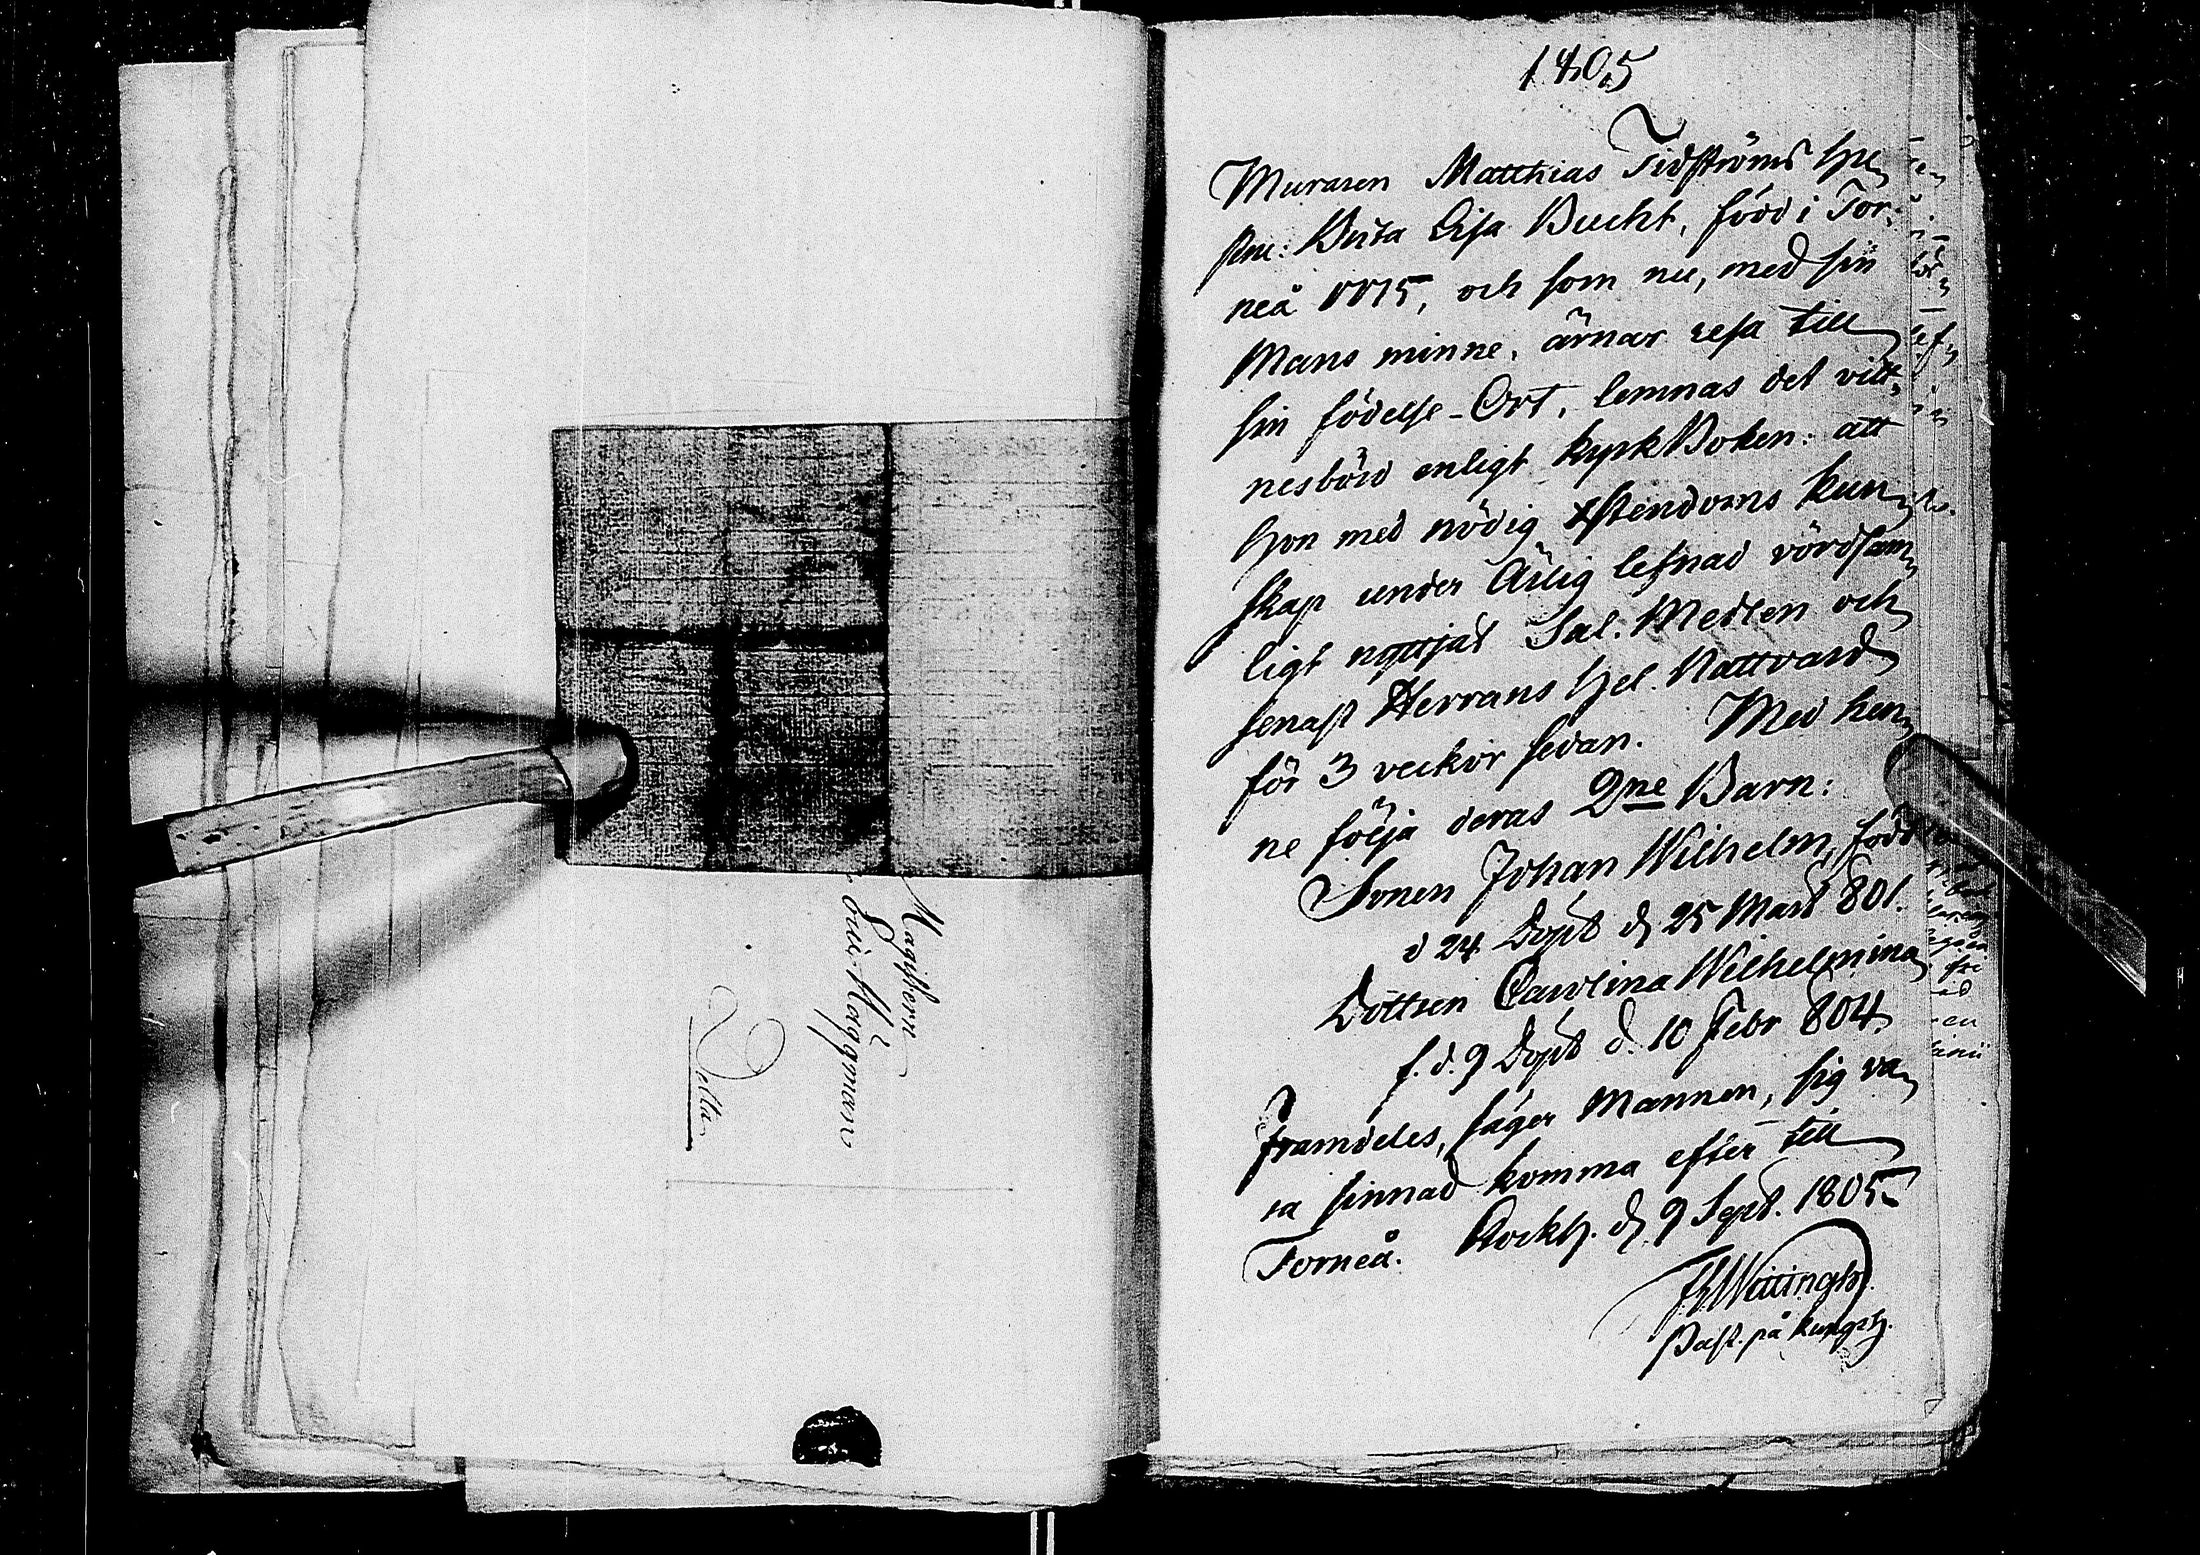 1805
Muraren Matthias Tidströms Hu-
stru: Brita Lisa Bucht, född i Tor-
neå 1775, och som nu, med sin
Mans minne, ärnar resa till
sin födelse-Ort, lemnas det vitt-
nesbörd enligt KyrkBoken: att
hon med nödig Xstendoms kun-
skap under Ärlig lefnad vördsam-
ligt nyttjat Sal. Medlen och
senast Herrans Hel. Nattvard
för 3 veckor sedan. Med hen-
ne följa deras 2ne Barn:
Sonen Johan Wilhelm, född
d 24 Döpt d 25 Mart 801.
Dottren Carolina Wilhelmina
f. d. 9 Döpt d. 10 Febr 804.
Framdeles, säger Mannen, sig va-
ra sinnad komma efter till
Torneå. Stockh. d 9 Sept. 1805
Past. på Kungsh.
Magistern